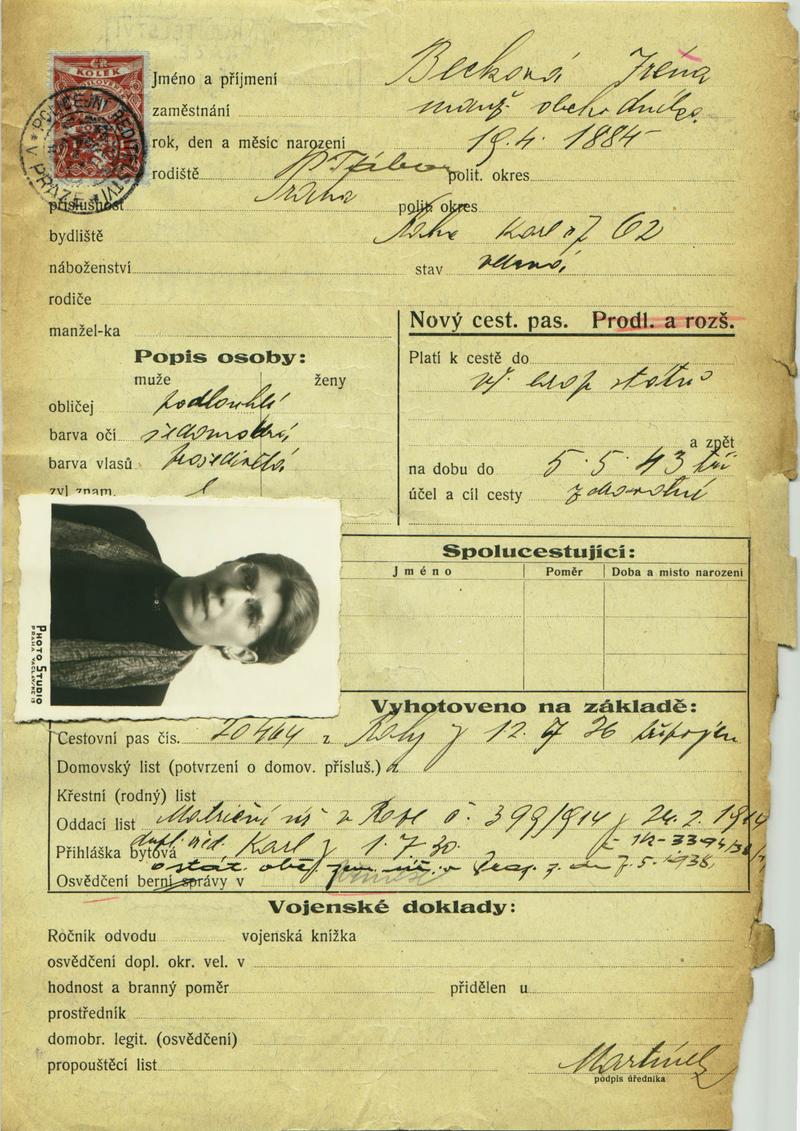 ČR
KOLEK
POLICEJNÍ ŘEDITELSTVÍ V PRAZE
Jméno a příjmení Becková Iréna
zaměstnání manž. obchodníka
rok, den a měsíc narození 19. 4. 1884
rodiště Tábor polit. okres
příslušnost Praha polit. okres
bydliště Karl. n 62
náboženství stav vdaná
rodiče
manžel-ka
Nový cest. pas. Prodl. a rozš.
Popis osoby:
muže ženy
obličej podlouhlý
barva očí šedomodrá
barva vlasů prošedivělá
zvl. znam.
Platí k cestě do
vš. evrop. států
a zpět
na dobu do 5. 5. 43
účel a cíl cesty zdravotní
PHOTO STUDIO
PRAHA
Spolucestující:
Jméno Poměr Doba a místo narození
Vyhotoveno na základě:
Cestovní pas čís. 20464 z 12. 7. 26
Domovský list (potvrzení o domov. přísluš.)
Křestní (rodný) list
Oddací list Matriční č. 399/914 z 24. 2. 1914
Přihláška bytová Karl 1. 7. 30.
Osvědčení berní správy v 7. 5. 1938
Vojenské doklady:
Ročník odvodu vojenská knížka
osvědčení dopl. okr. vel. v
hodnost a branný poměr přidělen u
prostředník
domobr. legit. (osvědčení)
propouštěcí list
Martínek
podpis úředníka